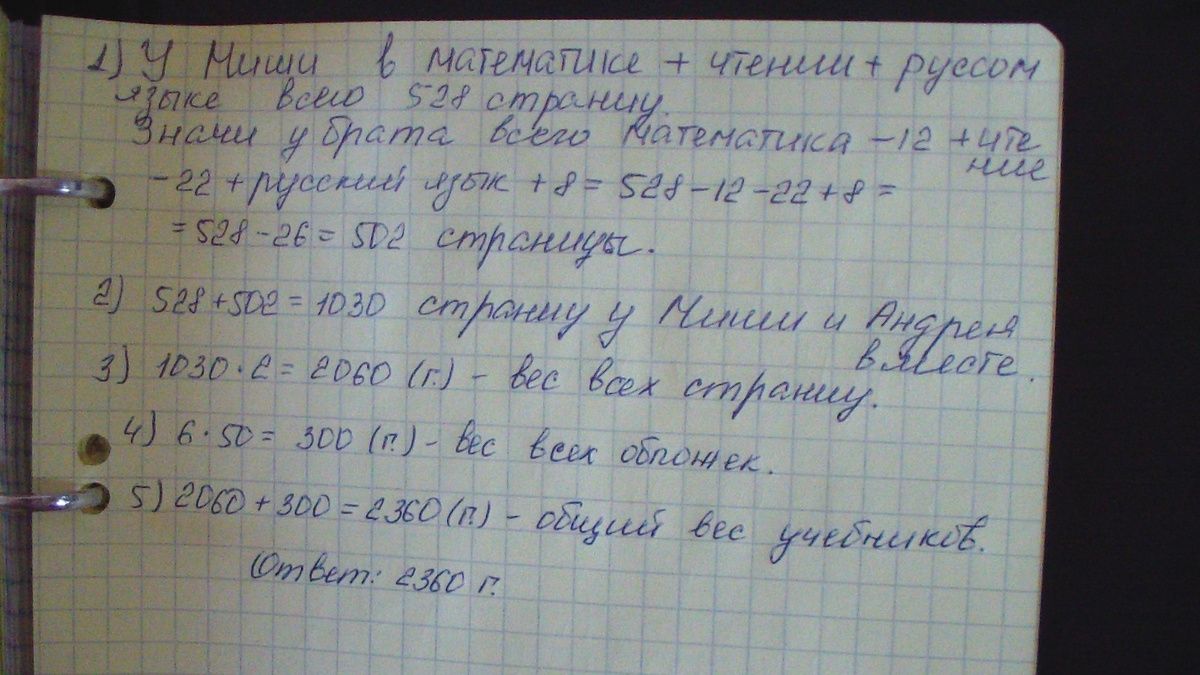 1) У Миши в математике + чтении + руссом
языке всего 528 страниц.
Значи у брата всего математика -12 + чте
ние
-22 + русский язык + 8 = 528 - 12 - 22 + 8 =
= 528 - 26 = 502 страницы.
2) 528 + 502 = 1030 страниц у Миши и Андрея
вместе.
3) 1030 · 2 = 2060 (г.) - вес всех страниц.
4) 6 · 50 = 300 (г.) - вес всех обложек.
5) 2060 + 300 = 2360 (г.) - общий вес учебников.
Ответ: 2360 г.